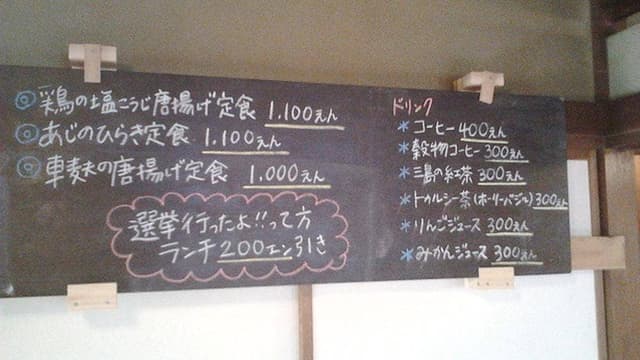 ◎彩鳥の塩こうじ唐揚げ定食 1.100えん
◎あじのひらき定食 1.100えん
◎車麩の唐揚げ定食 1.000えん
選挙行ったよ!!って方
ランチ200エン引き
ドリンク
*コーヒー400えん
*穀物コーヒー300えん
*三島の紅茶 300えん
*トゥルシー茶(ホーリーバジル)300えん
*りんごジュース 300えん
*みかんジュース 300えん